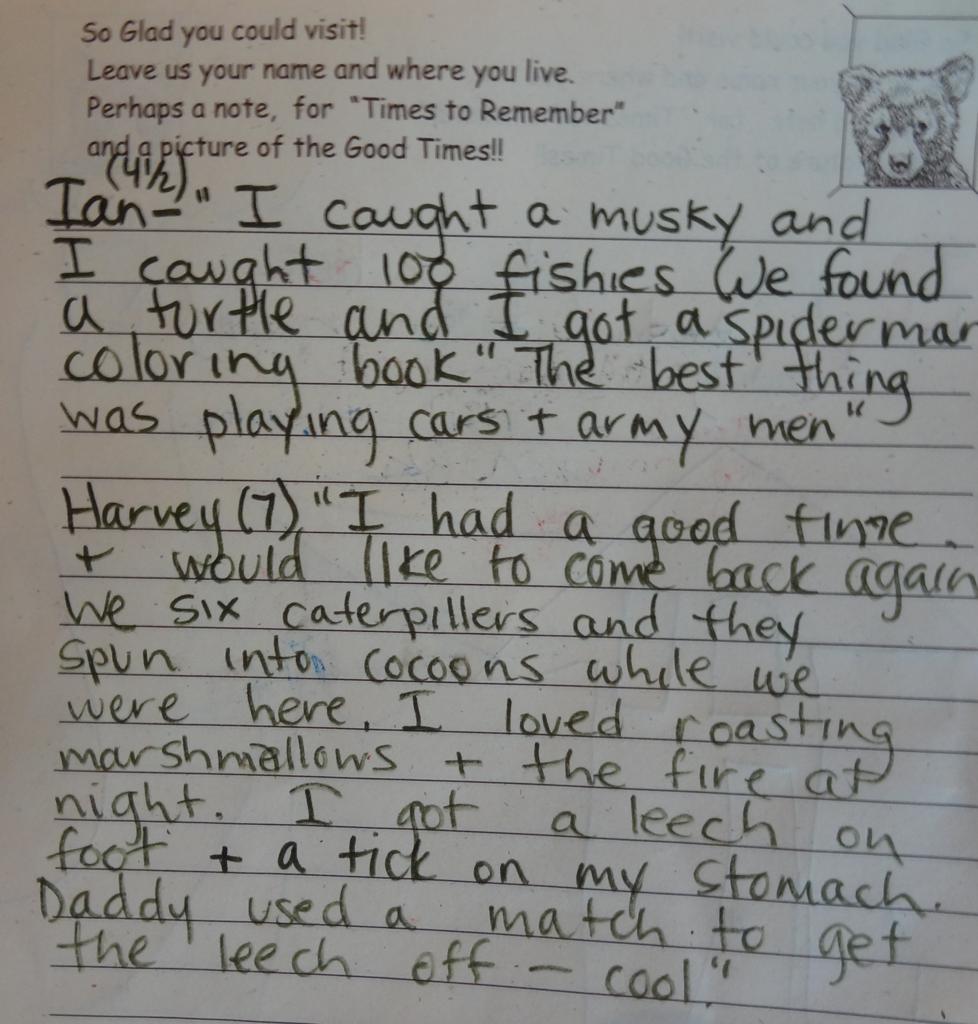 So Glad you could visit!
Leave us your name and where you live.
Perhaps a note, for "Times to Remember"
and a picture of the Good Times!!
(4½)
Ian-" I caught a musky and
I caught 100 fishies We found
a turtle and I got a spiderman
coloring book" The best thing
was playing cars + army men"
Harvey (7) "I had a good time.
+ would like to come back again
We six caterpillers and they
spun into cocoons while we
were here. I loved roasting
marshmallows + the fire at
night. I got a leech on
foot + a tick on my stomach.
Daddy used a match to get
the leech off - cool."